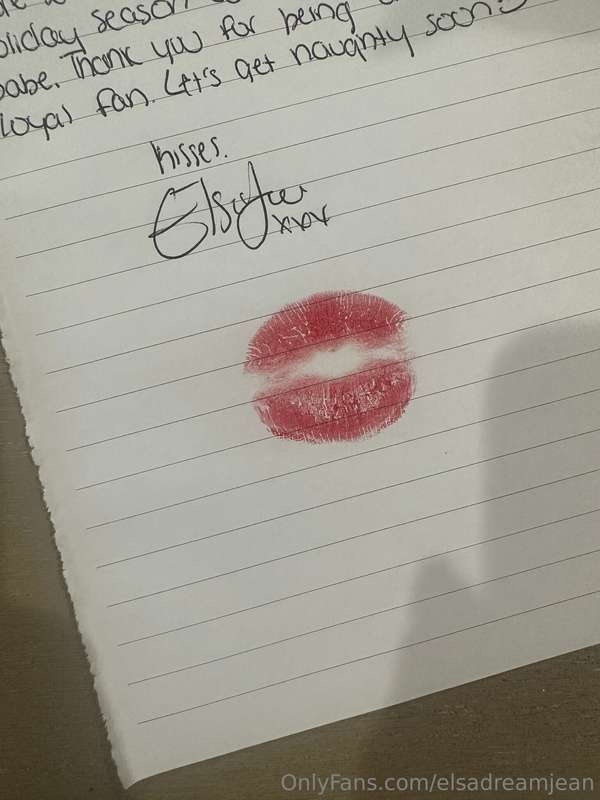 oliday season
babe. Thank you for being
loyal fan. Let's get naughty soon :)
kisses.
xxx
OnlyFans.com/elsadreamjean